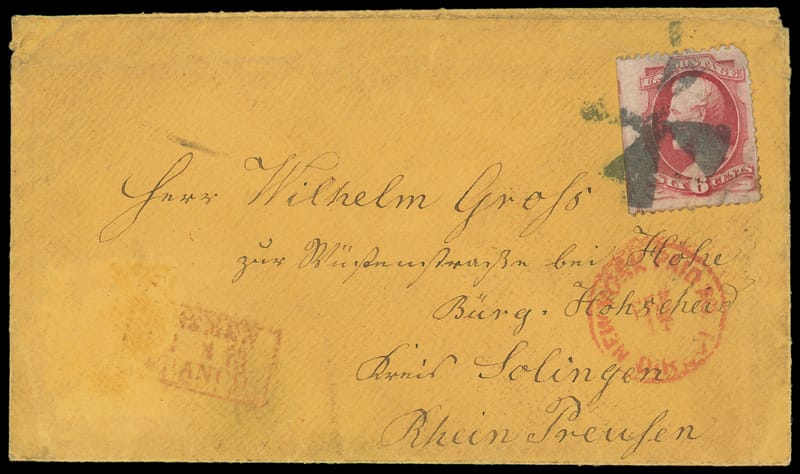 U.S. POSTAGE
SIX 6 CENTS
Herr Wilhelm Gross
zur Wüstenstraße bei Höhe
Bürg. Höhscheid
Kreis Solingen
Rhein Preusen
NEW YORK PAID ALL